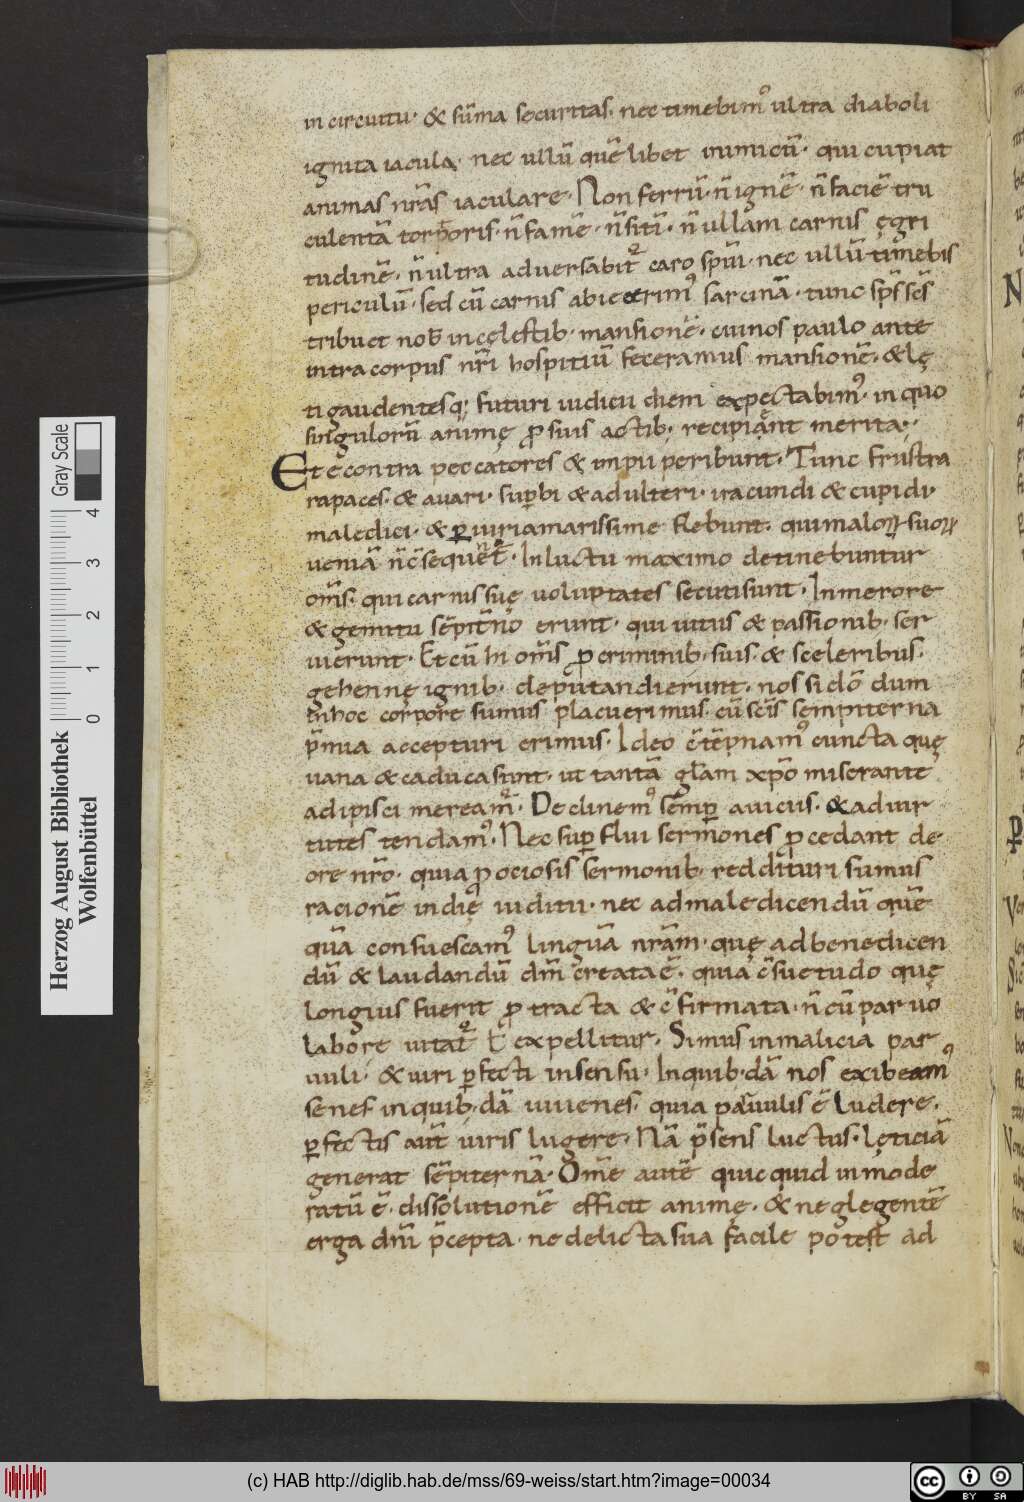 in circuitu· & sūma securitas· nec timebimꝰ ultra diaboli
ignita iacula· nec ullū quē libet inimicū· qui cupiat
animas nr̄as iaculare· Non ferrū· n̄ ignē· n̄ faciē tru
culentā torporis· n̄ famē· n̄ sitī· n̄ ullam carnis ęgri
tudinē· n̄ ultra adversabit᷑ caro spūi· nec ullū timebis
periculū· sed cū carnis abiecerimꝰ sarcinā· tunc sp̄s sc̄s
tribuet nob̄ in cęlestib· mansionē· cui nos paulo ante
intra corpus nr̄i hospitiū feceramus mansionē· & lę
ti gaudentesq; futuri iudicii diem expectabimꝰ· in quo
singulorū animę ꝓ suis actib; recipiant merita·
Et econtra peccatores & impii peribunt· Tunc frustra
rapaces· & auari· suꝑbi & adulteri· iracundi & cupidi·
maledici· & ꝑiuri amarissime flebunt· qui maloꝝ suoꝝ
ueniā n̄ c̄sequent᷑· In luctu maximo detinebuntur
om̄s· qui carnis suę uoluptates secuti sunt· In merore
& gemitu sēpit̄no erunt· qui uitiis & passionib· ser
uierunt· Et cū hi om̄s ꝓ criminib· suis· & sceleribus·
gehennę ignib· deputandi erunt· nos si dō dum
in hoc corpore sumus placuerimus· cū sc̄is sempiterna
p̄mia accepturi erimus· Ideo c̄tēpnamꝰ cuncta quę
uana & caduca sunt· ut tantā gl̄am xp̄o miserante
adipisci meream᷑· Declinemꝰ sēmꝑ a uiciis· & ad uir
tutes tendamꝰ· Nec suꝑflui sermones ꝓcedant de
ore nr̄o· quia ꝓ ociosis sermonib· reddituri sumus
racionē in dię iuditii· nec ad maledicendū quē
quā consuescamꝰ linguā nr̄am· quę ad benedicen
dū & laudandū dn̄m creata ē· quia c̄suetudo quę
longius fuerit ꝓtracta & c̄firmata· n̄ cū paruo
labore uitat᷑ ł expellitur· Simus in malicia par
uuli· & uiri ꝑfecti in sensu· In quib·dā nos exibeamꝰ
senes in quib·dā iuuenes· quia paruulis ē ludere·
ꝑfectis aut̄ uiris lugere· Nā p̄sens luctus· lęticiā
generat sēpiternā· Om̄e autē quicquid inmode
ratū ē· dissolutionē efficit animę· & neglegentē
erga dn̄i p̄cepta· ne delicta sua facile potest ad
Herzog August Bibliothek
Wolfenbüttel
Gray Scale
0 1 2 3 4
(c) HAB http://diglib.hab.de/mss/69-weiss/start.htm?image=00034
cc BY SA